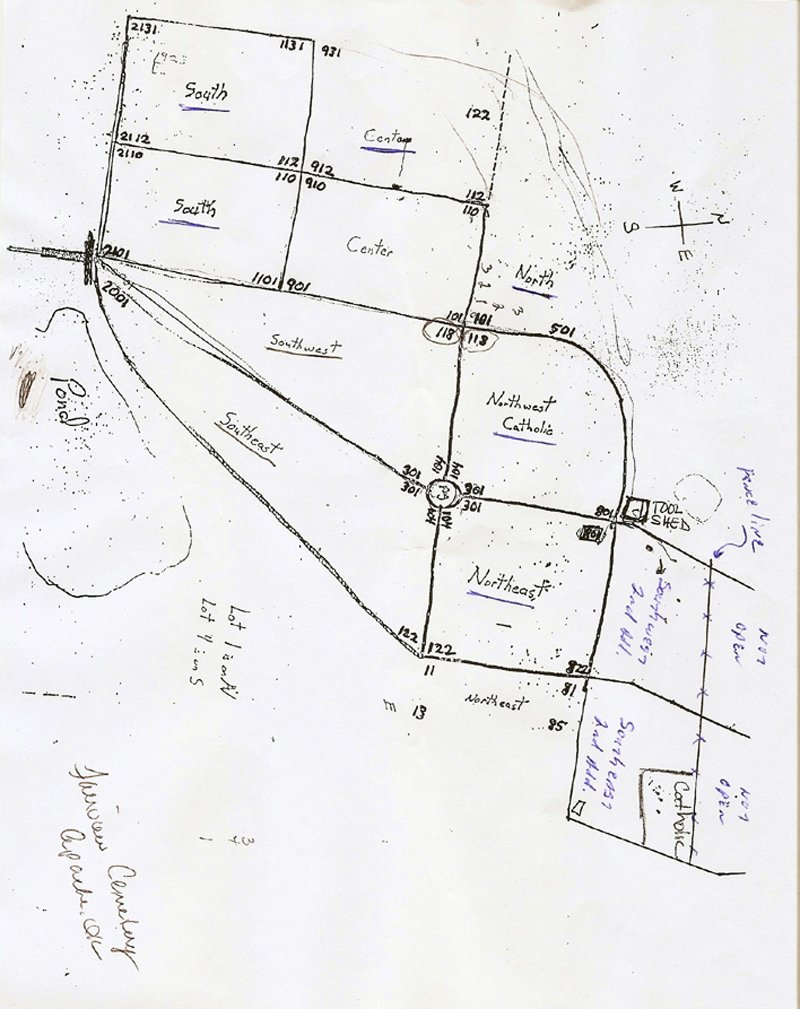 2131
1131
931
South
122
Center
2112
2110
112
912
110
910
112
110
N
W
E
S
South
Center
North
3
2
1
2
3
2101
2001
1101
901
101
901
118
118
501
Southwest
Northwest
Catholic
Pond
Southeast
301
301
104
104
301
301
104
104
801
801
TOOL
SHED
Fence line
Northeast
Southwest
2nd Add.
NOT
OPEN
122
122
11
822
81
Northeast
85
E
13
Southeast
2nd Add.
NOT
OPEN
Catholic
Lot 1 is on N
Lot 4 is on S
3
4
1
Fairview Cemetery
Apache, OK